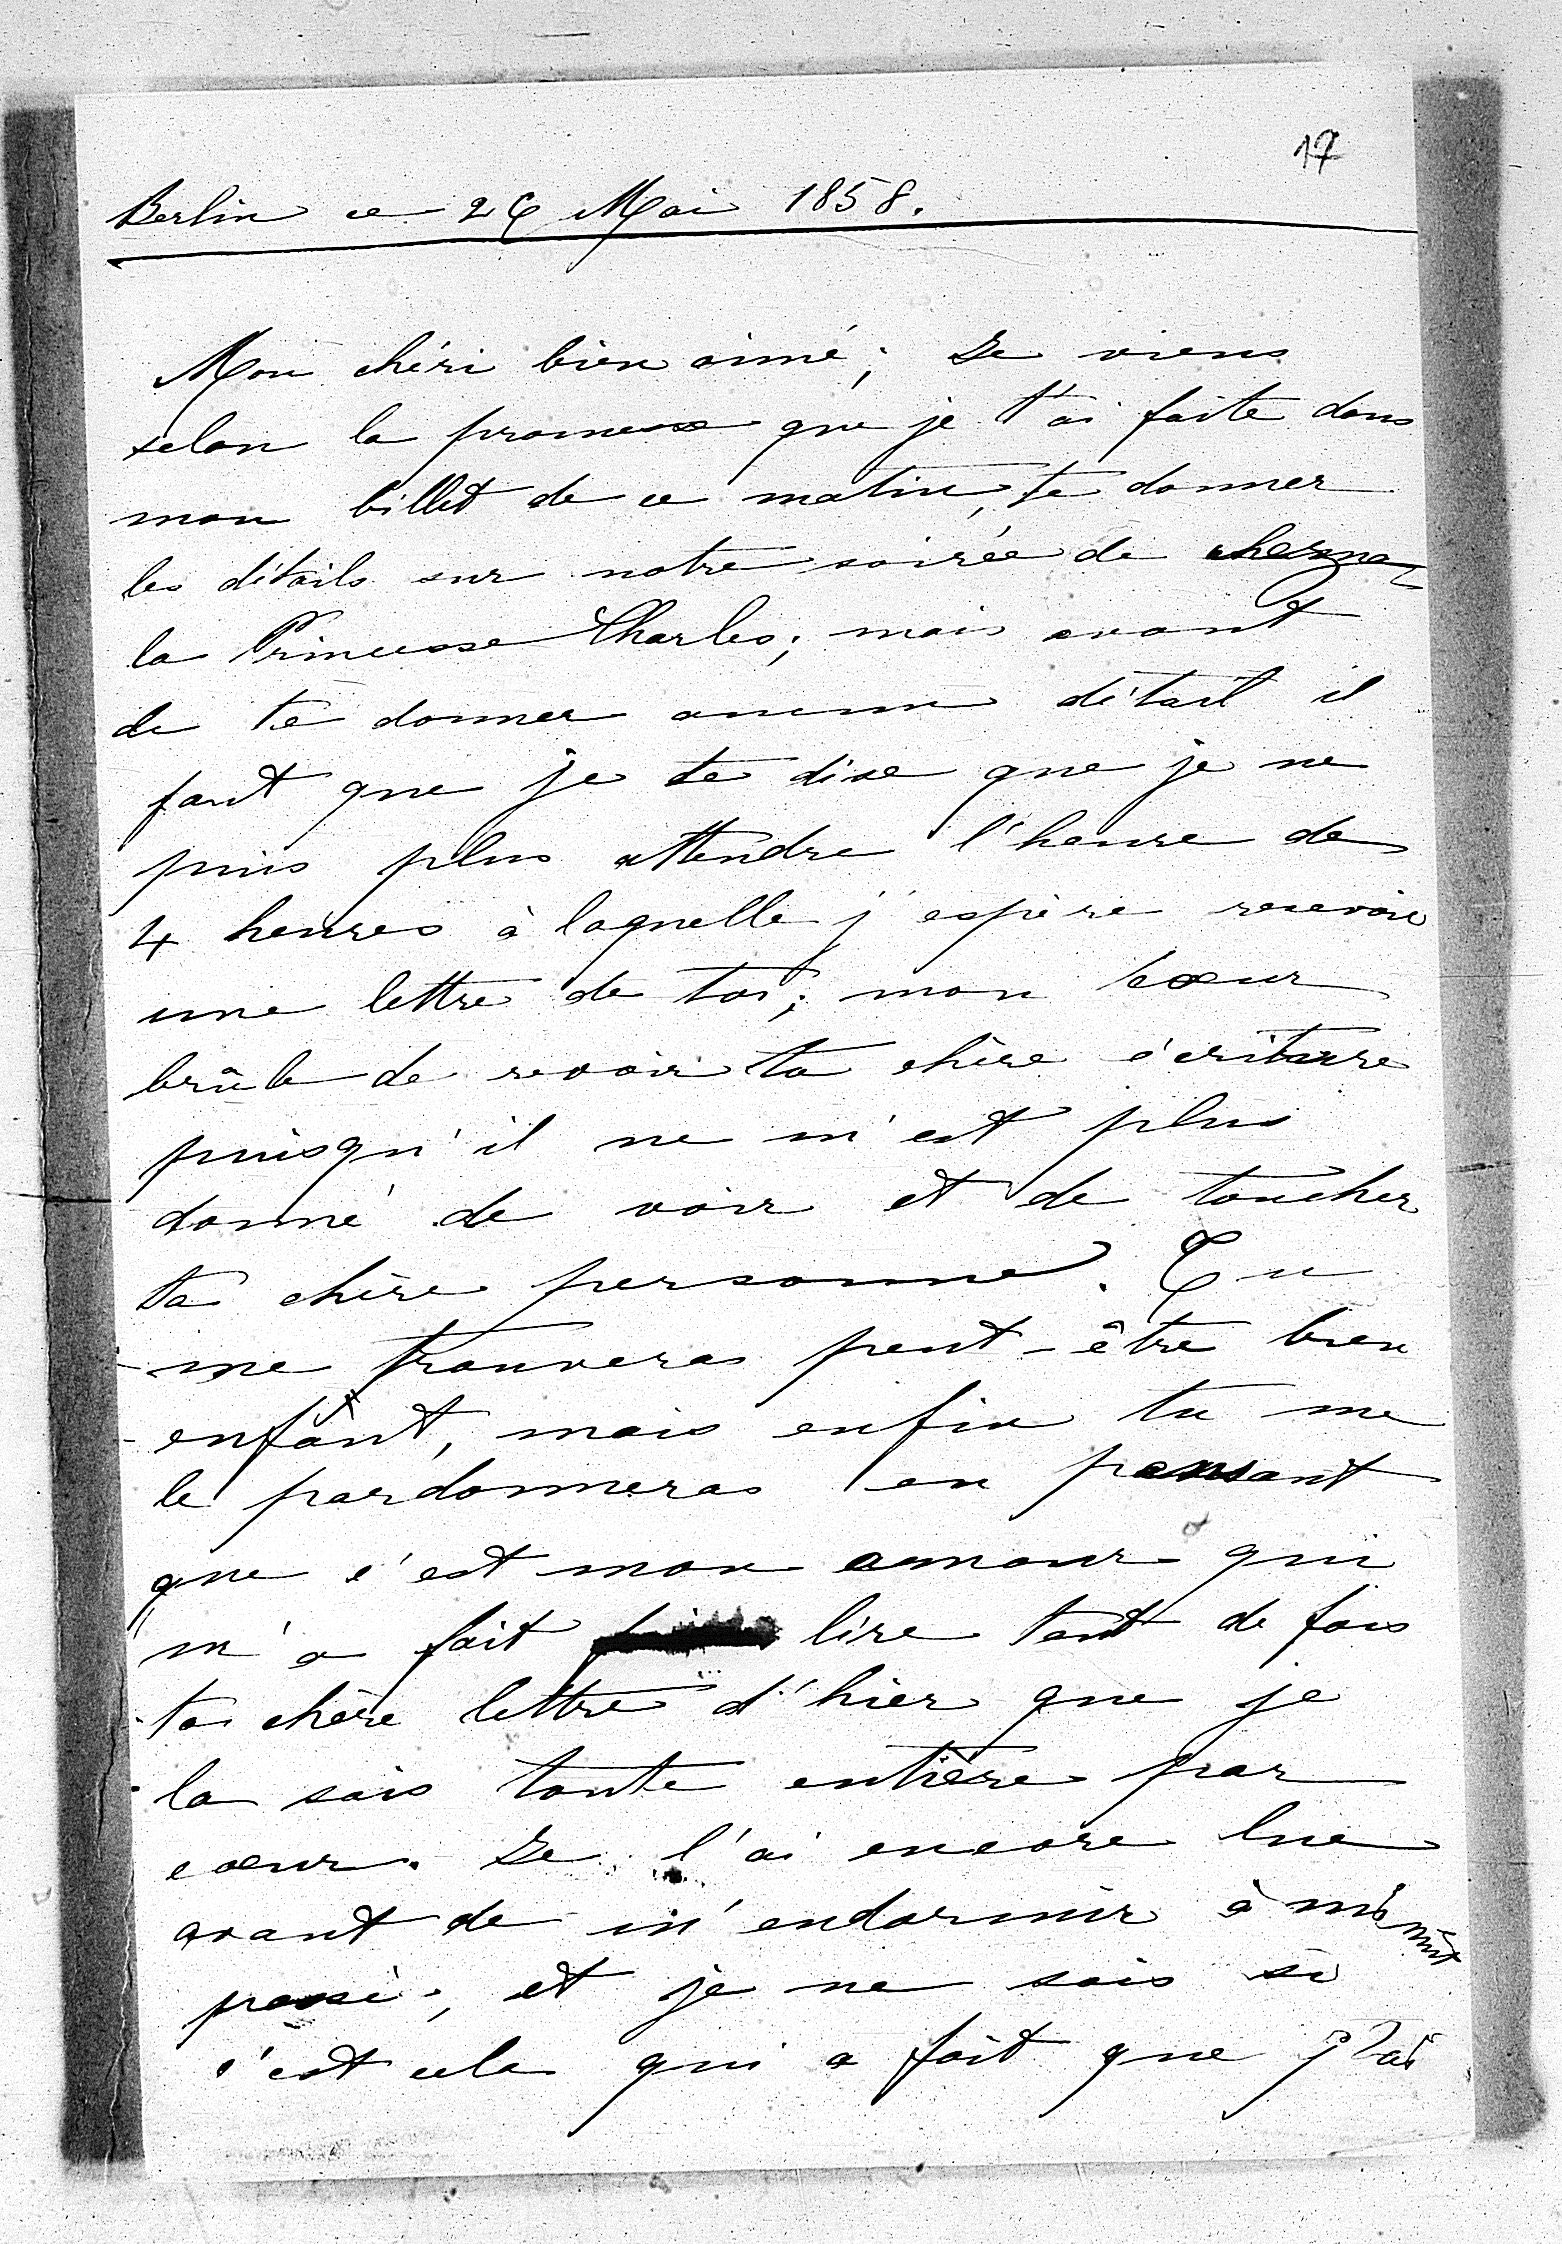 17
Berlin ce 26 Mai 1858.
Mon chéri bien aimé; Je viens
selon la promesse que je t'ai faite dans
mon billet de ce matin, te donner
les détails sur notre soirée de chez
la Princesse Charles; mais avant
de te donner aucun détail il
faut que je te dise que je ne
puis plus attendre l'heure de
4 heures à laquelle j'espère recevoir
une lettre de toi; mon cœur
brûle de revoir ta chère écriture
puisqu'il ne m'est plus
donné de voir et de toucher
ta chère personne. Tu
me trouveras peut-être bien
enfant, mais enfin tu me
le pardonneras en pensant
que c'est mon amour qui
m'a fait lire tant de fois
ta chère lettre d'hier que je
la sais toute entière par
cœur. Je l'ai encore lue
avant de m'endormir à minuit
passé; et je ne sais si
c'est cela qui a fait que j'ai